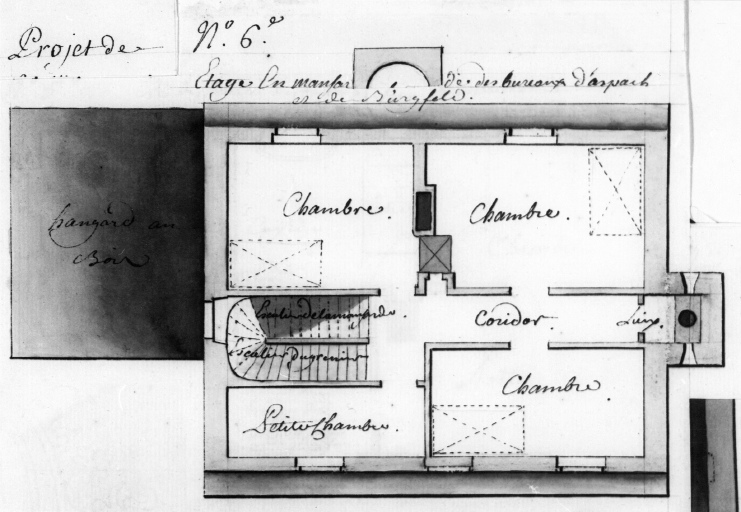 Projet de
N.º 6.e
Etage En mansarde des bureaux d'aspach
et de Bürgfeld.
hangard au
Bois
Chambre.
Chambre.
Escalier de la mansarde.
Coridor.
Lieux.
Escalier du grenier
Chambre.
Petite Chambre.